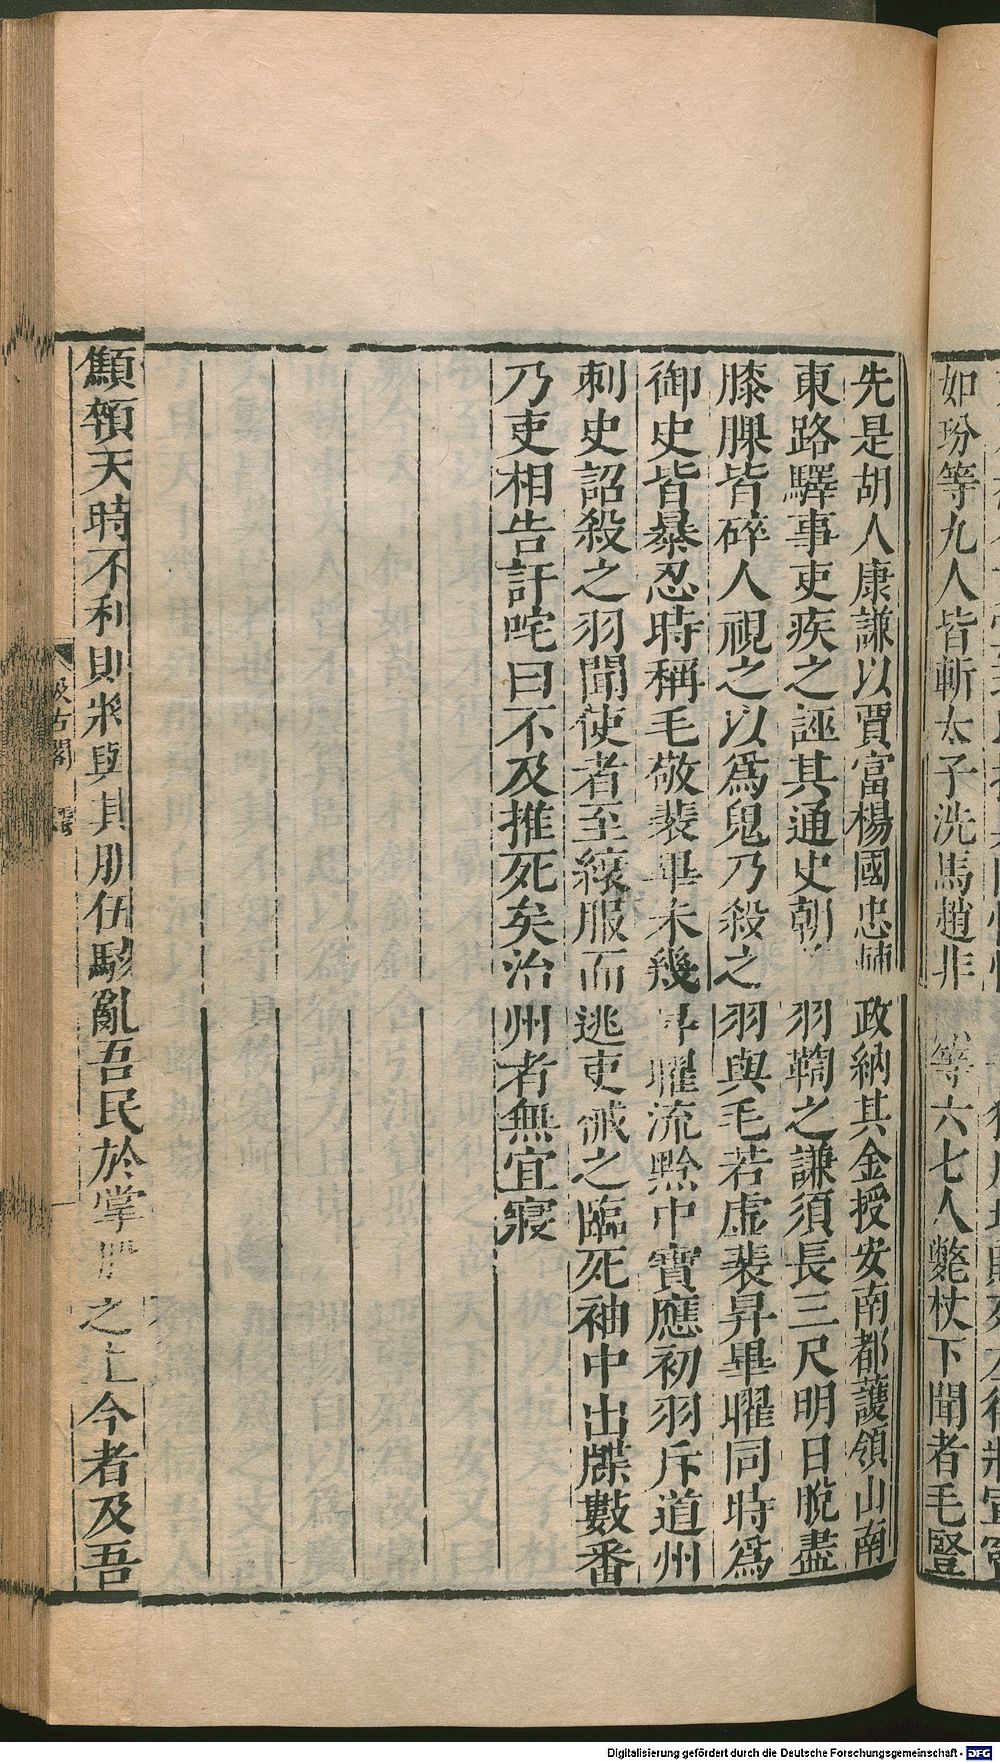 如玢等九人皆斬太子洗馬趙非
等六七人斃杖下聞者毛豎
先是胡人康謙以賈富楊國忠輔政納其金授安南都護領山南
東路驛事吏疾之誣其通史朝羽鞫之謙須長三尺明日脫盡
膝腂皆碎人視之以爲鬼乃殺之羽與毛若虛裴昇畢曜同時爲
御史皆暴忍時稱毛敬裴畢未幾昇曜流黔中寶應初羽斥道州
刺史詔殺之羽聞使者至縗服而逃吏械之臨死袖中出牒數番
乃吏相告訐咤曰不及推死矣治州者無宜寢
汲古閣
顦顇天時不利則將與其朋伍駭亂吾民於掌之上今者及吾
Digitalisierung gefördert durch die Deutsche Forschungsgemeinschaft - DFG